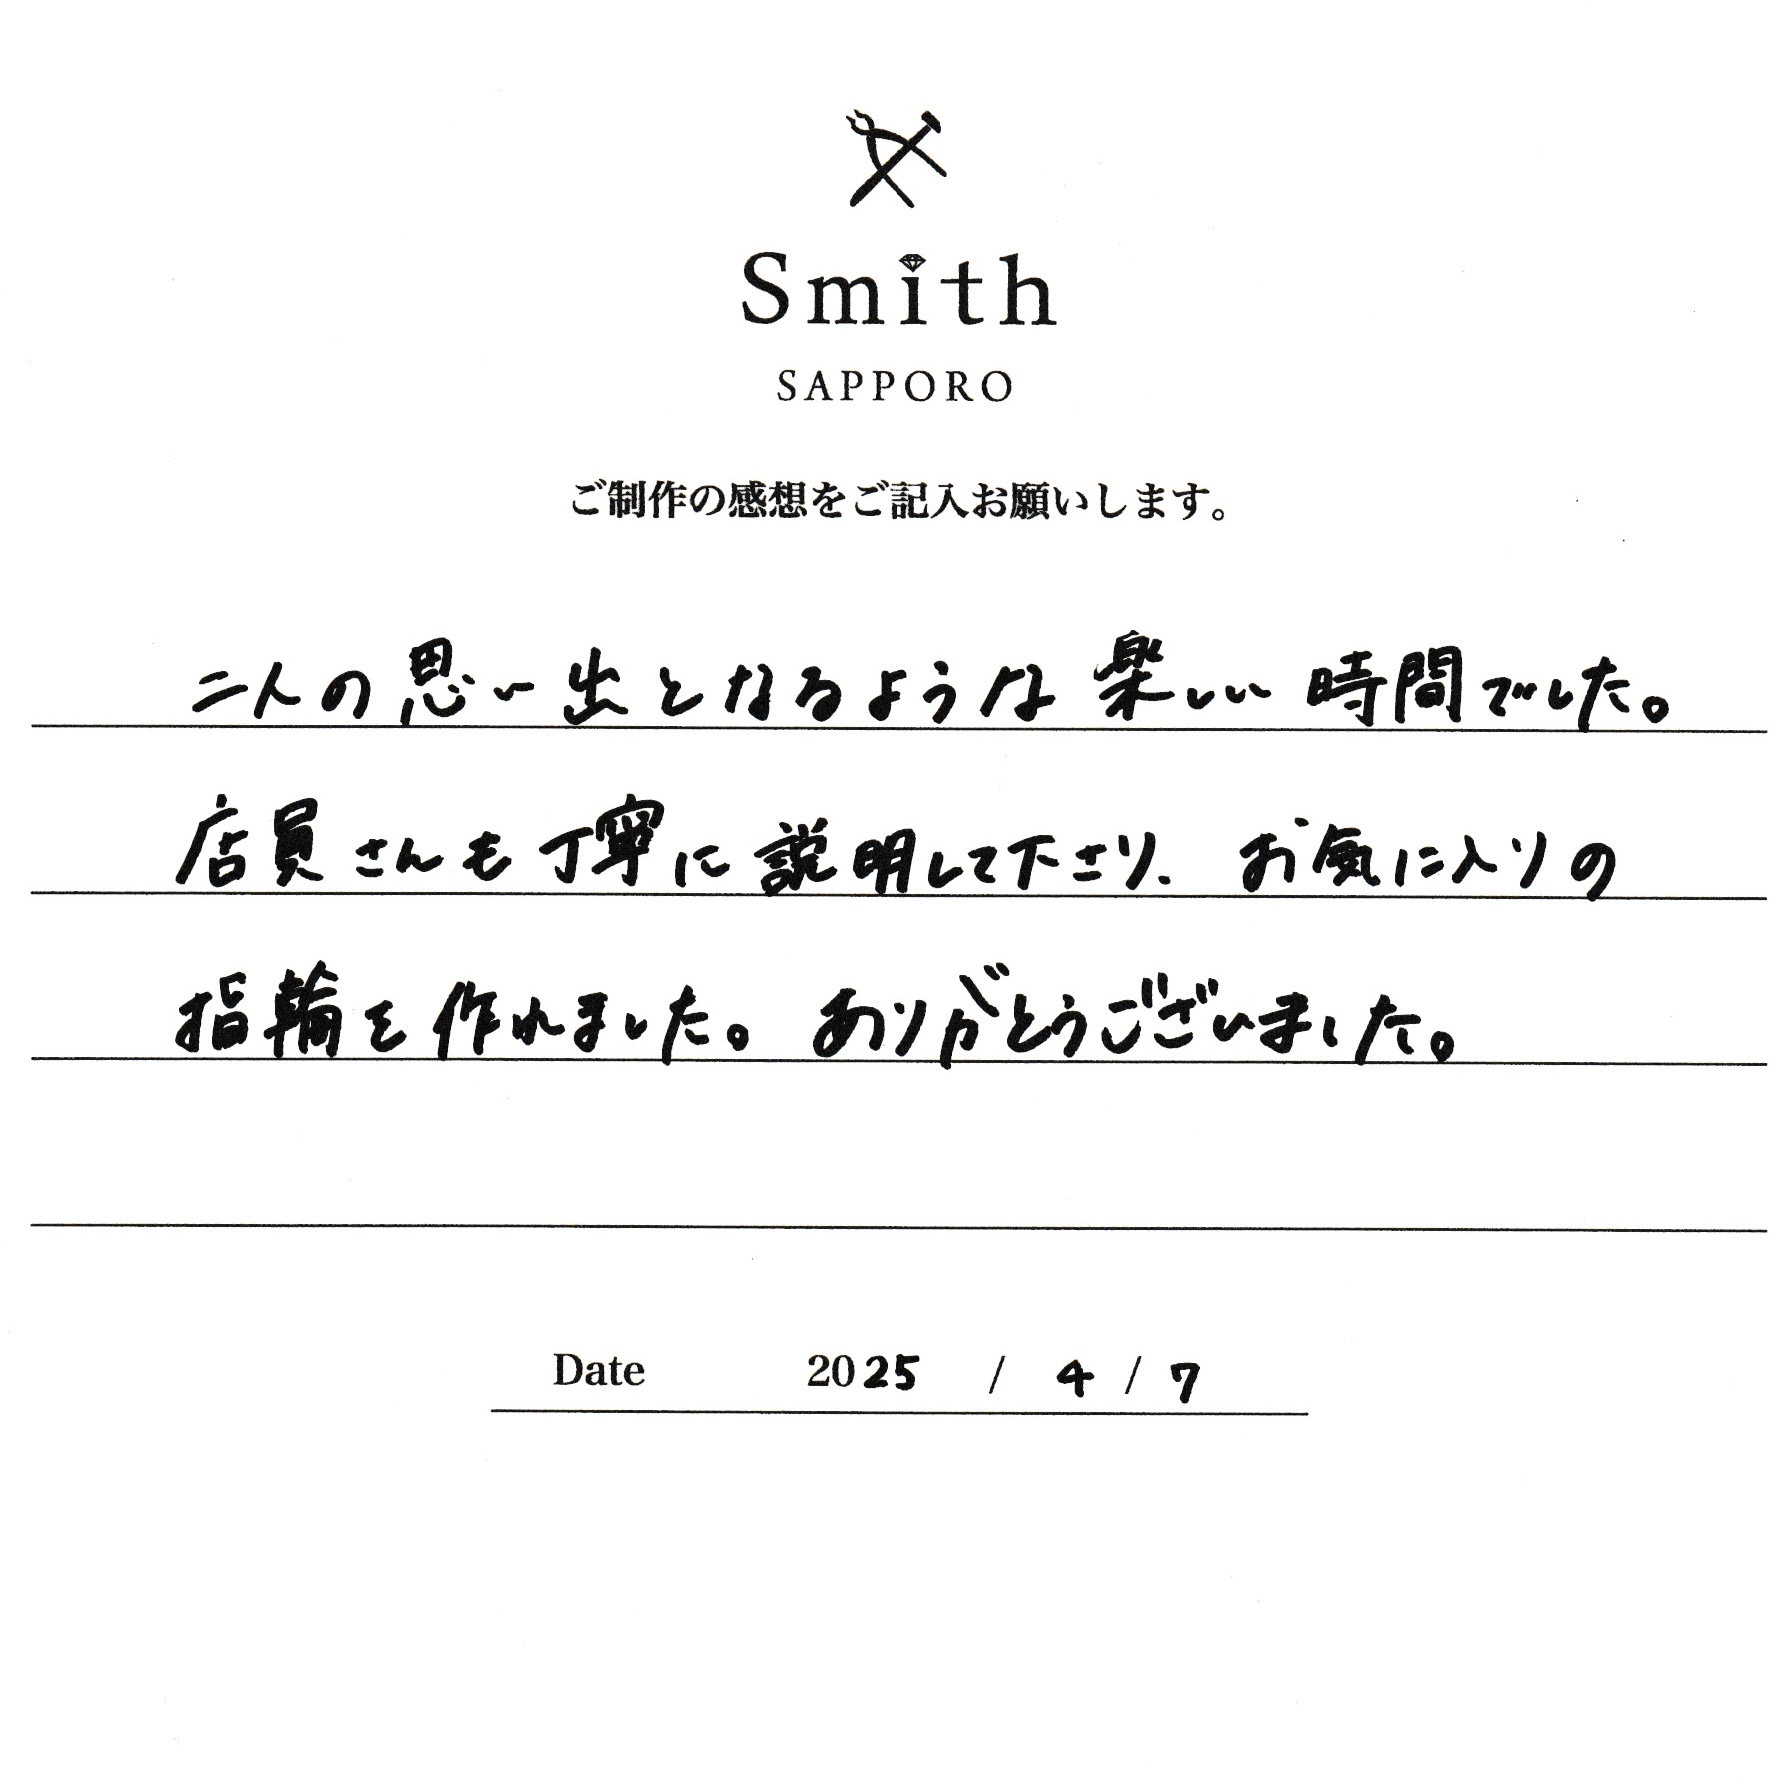 Smith
SAPPORO
ご制作の感想をご記入お願いします。
二人の思い出となるような楽しい時間でした。
店員さんも丁寧に説明して下さり、お気に入りの
指輪を作れました。ありがとうございました。
Date 2025 / 4 / 7